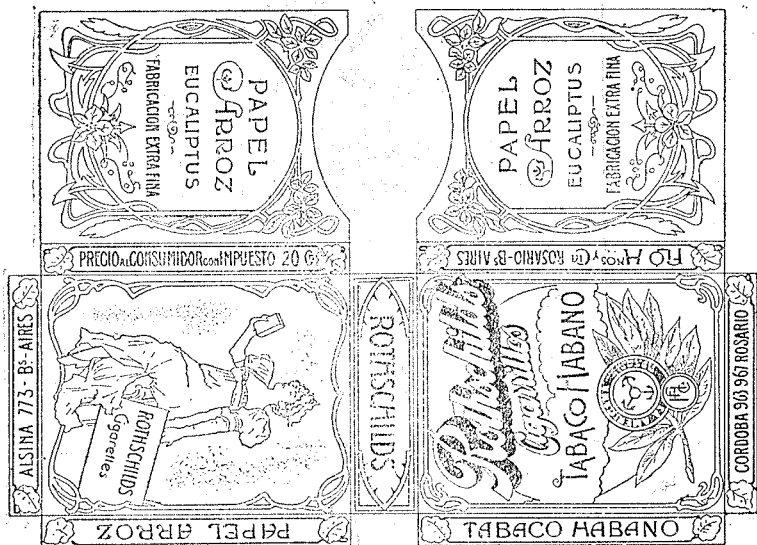 PAPEL
ARROZ
EUCALIPTUS
FABRICACION EXTRA FINA
PAPEL
ARROZ
EUCALIPTUS
FABRICACION EXTRA FINA
PRECIO AL CONSUMIDOR CON IMPUESTO 20 Cs
FLO Hnos y Cia ROSARIO-Bs AIRES
ALSINA 773 - Bs-AIRES
ROTHSCHILDS
Cigarettes
ROTHSCHILDS
Rothschilds
Cigarrillos
TABACO HABANO
CORDOBA 963 967 ROSARIO
PAPEL ARROZ
TABACO HABANO